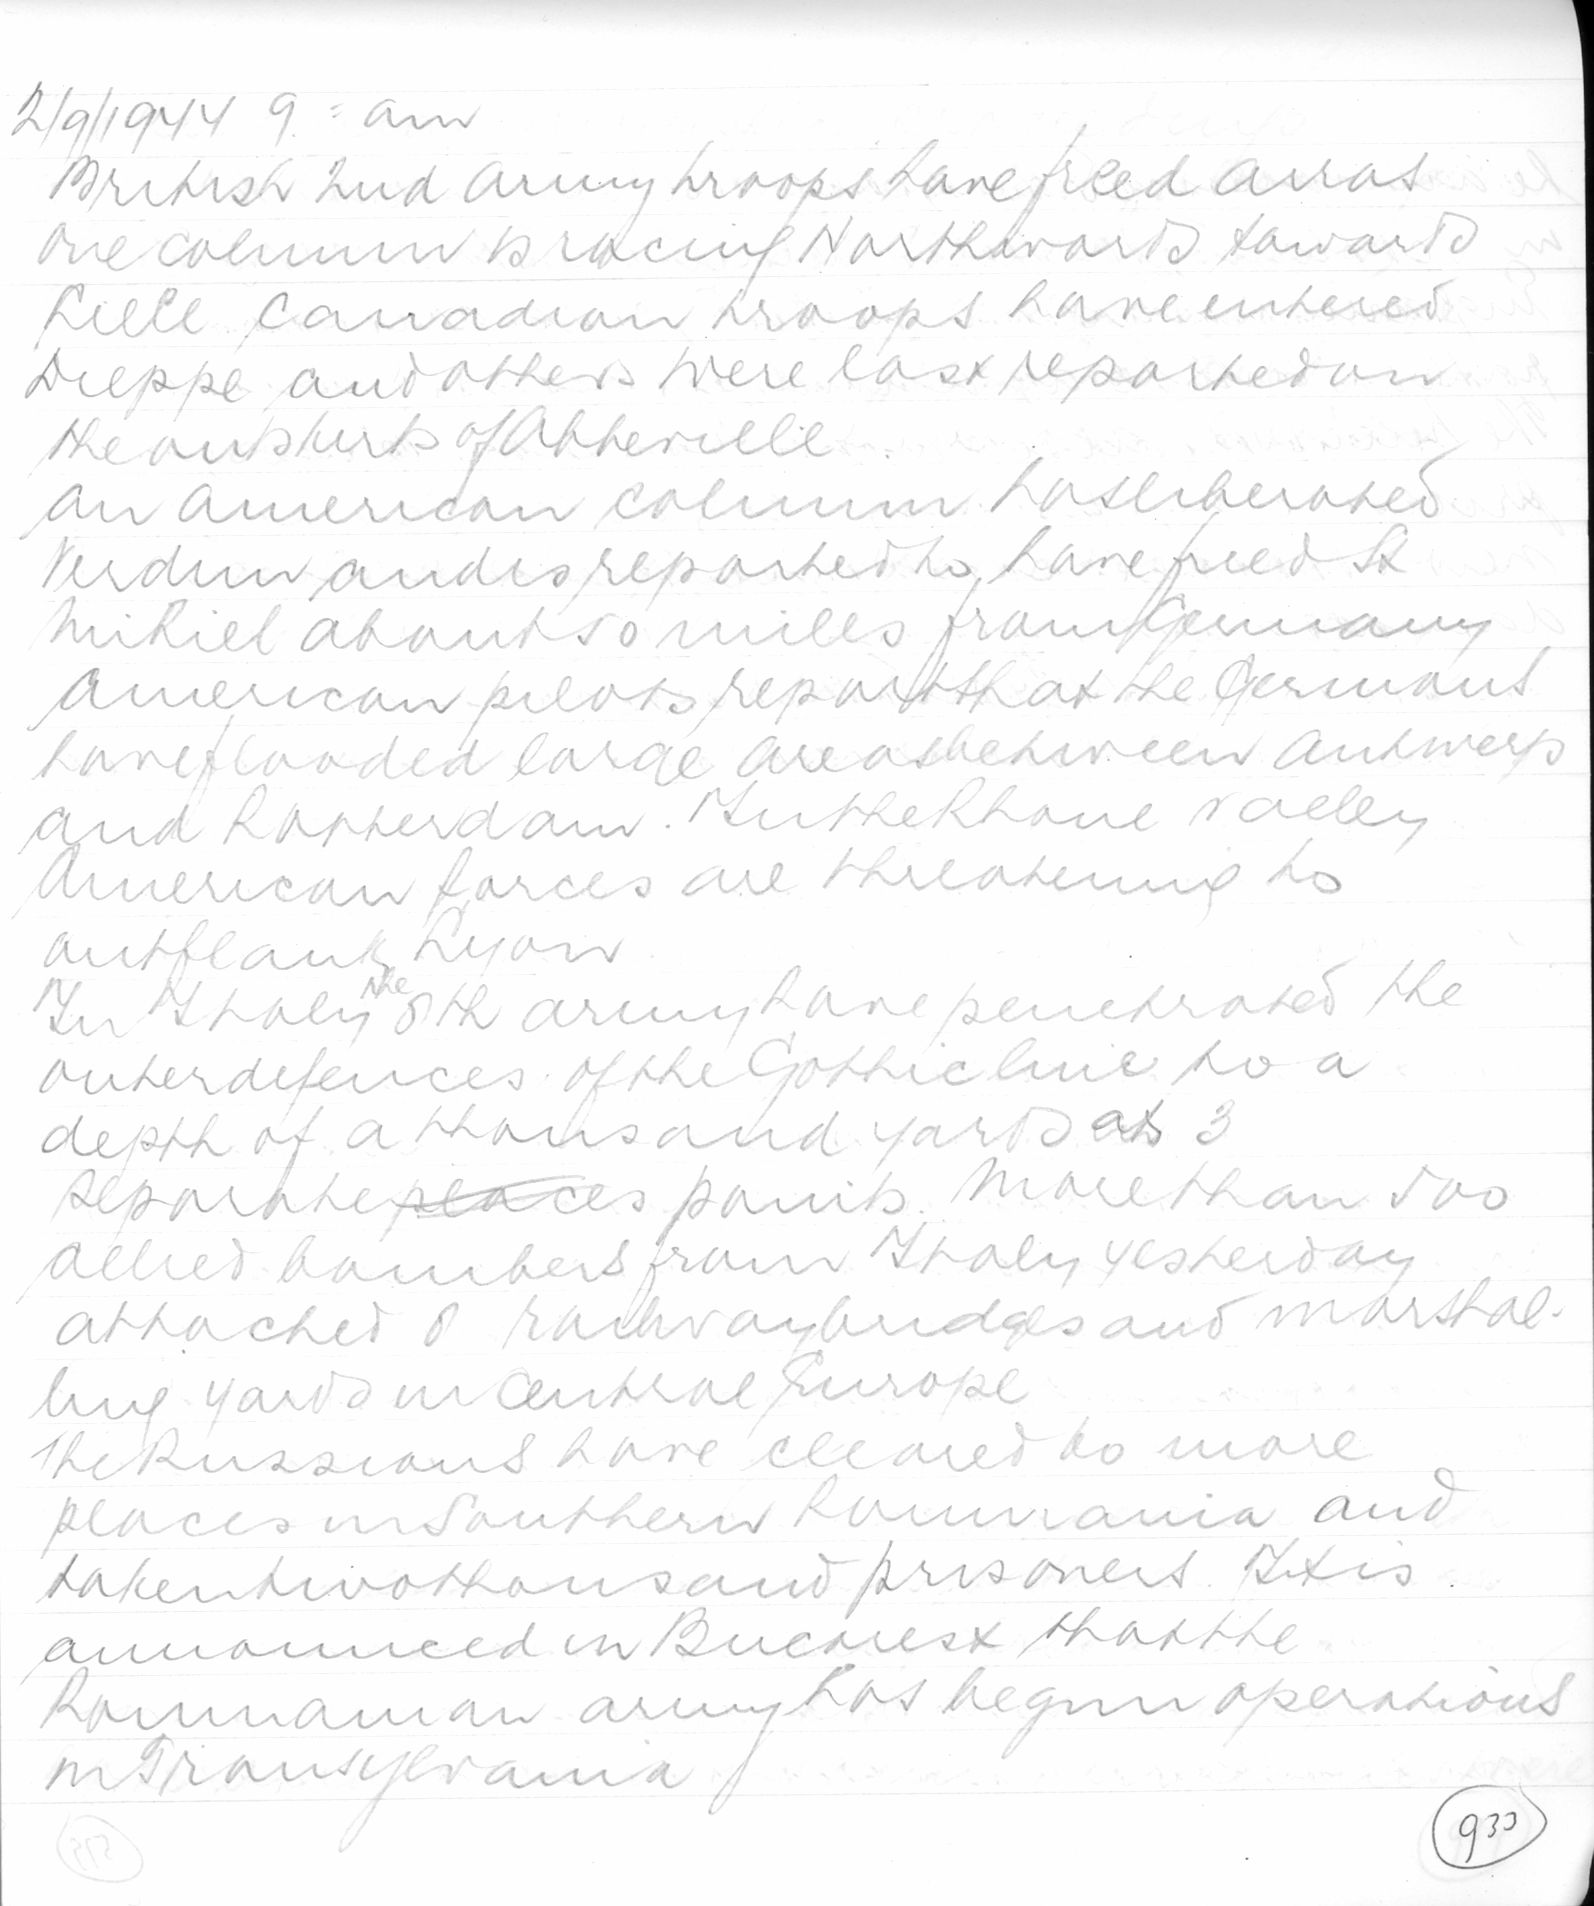 2/9/1944 9 = am
British 2nd Army troops have freed Arras
one column is racing Northwards towards
Lille Canadian troops have entered
Dieppe and others were last reported on
the outskirts of Abbeville
An American column has liberated
Verdun and is reported to have freed St
Mihiel about 50 miles from Germany
American pilots report that the Germans
have flooded large areas between Antwerp
and Rotterdam. In the Rhone valley
American forces are threatening to
outflank Lyon
In Italy the 8th army have penetrated the
outer defences of the Gothic line to a
depth of a thousand yards at 3
separate places points. More than 500
allied bombers from Italy yesterday
attacked 8 railway bridges and marshal-
ling yards in Central Europe
The Russians have cleared 60 more
places in Southern Roumania and
taken two thousand prisoners. It is
announced in Bucarest that the
Roumanian army has begun operations
in Transylvania
933